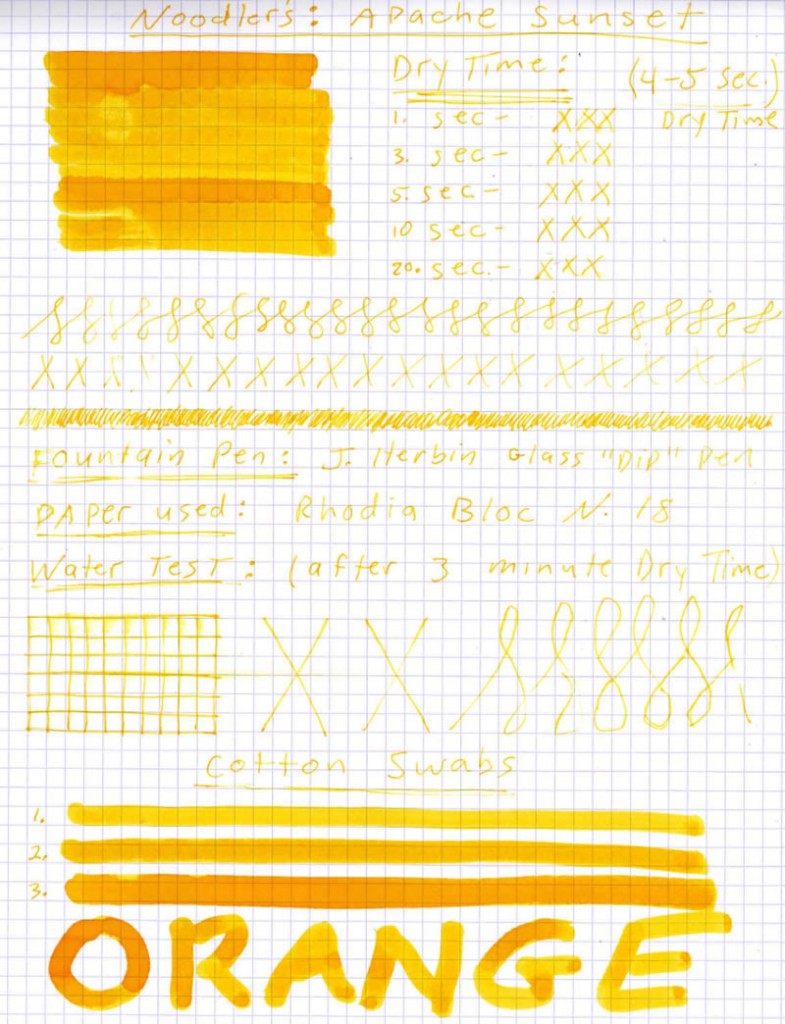 Noodler's: Apache Sunset
Dry Time: (4-5 sec.)
1. sec- XXX Dry Time
3. sec- XXX
5. sec- XXX
10 sec- XXX
20. sec.- XXX
X X X X X X X X X X X X X X X X X X
Fountain Pen: J. Herbin Glass "Dip" Pen
Paper used: Rhodia Bloc N. 18
Water Test: (after 3 minute Dry Time)
X X
Cotton Swabs
1.
2.
3.
ORANGE